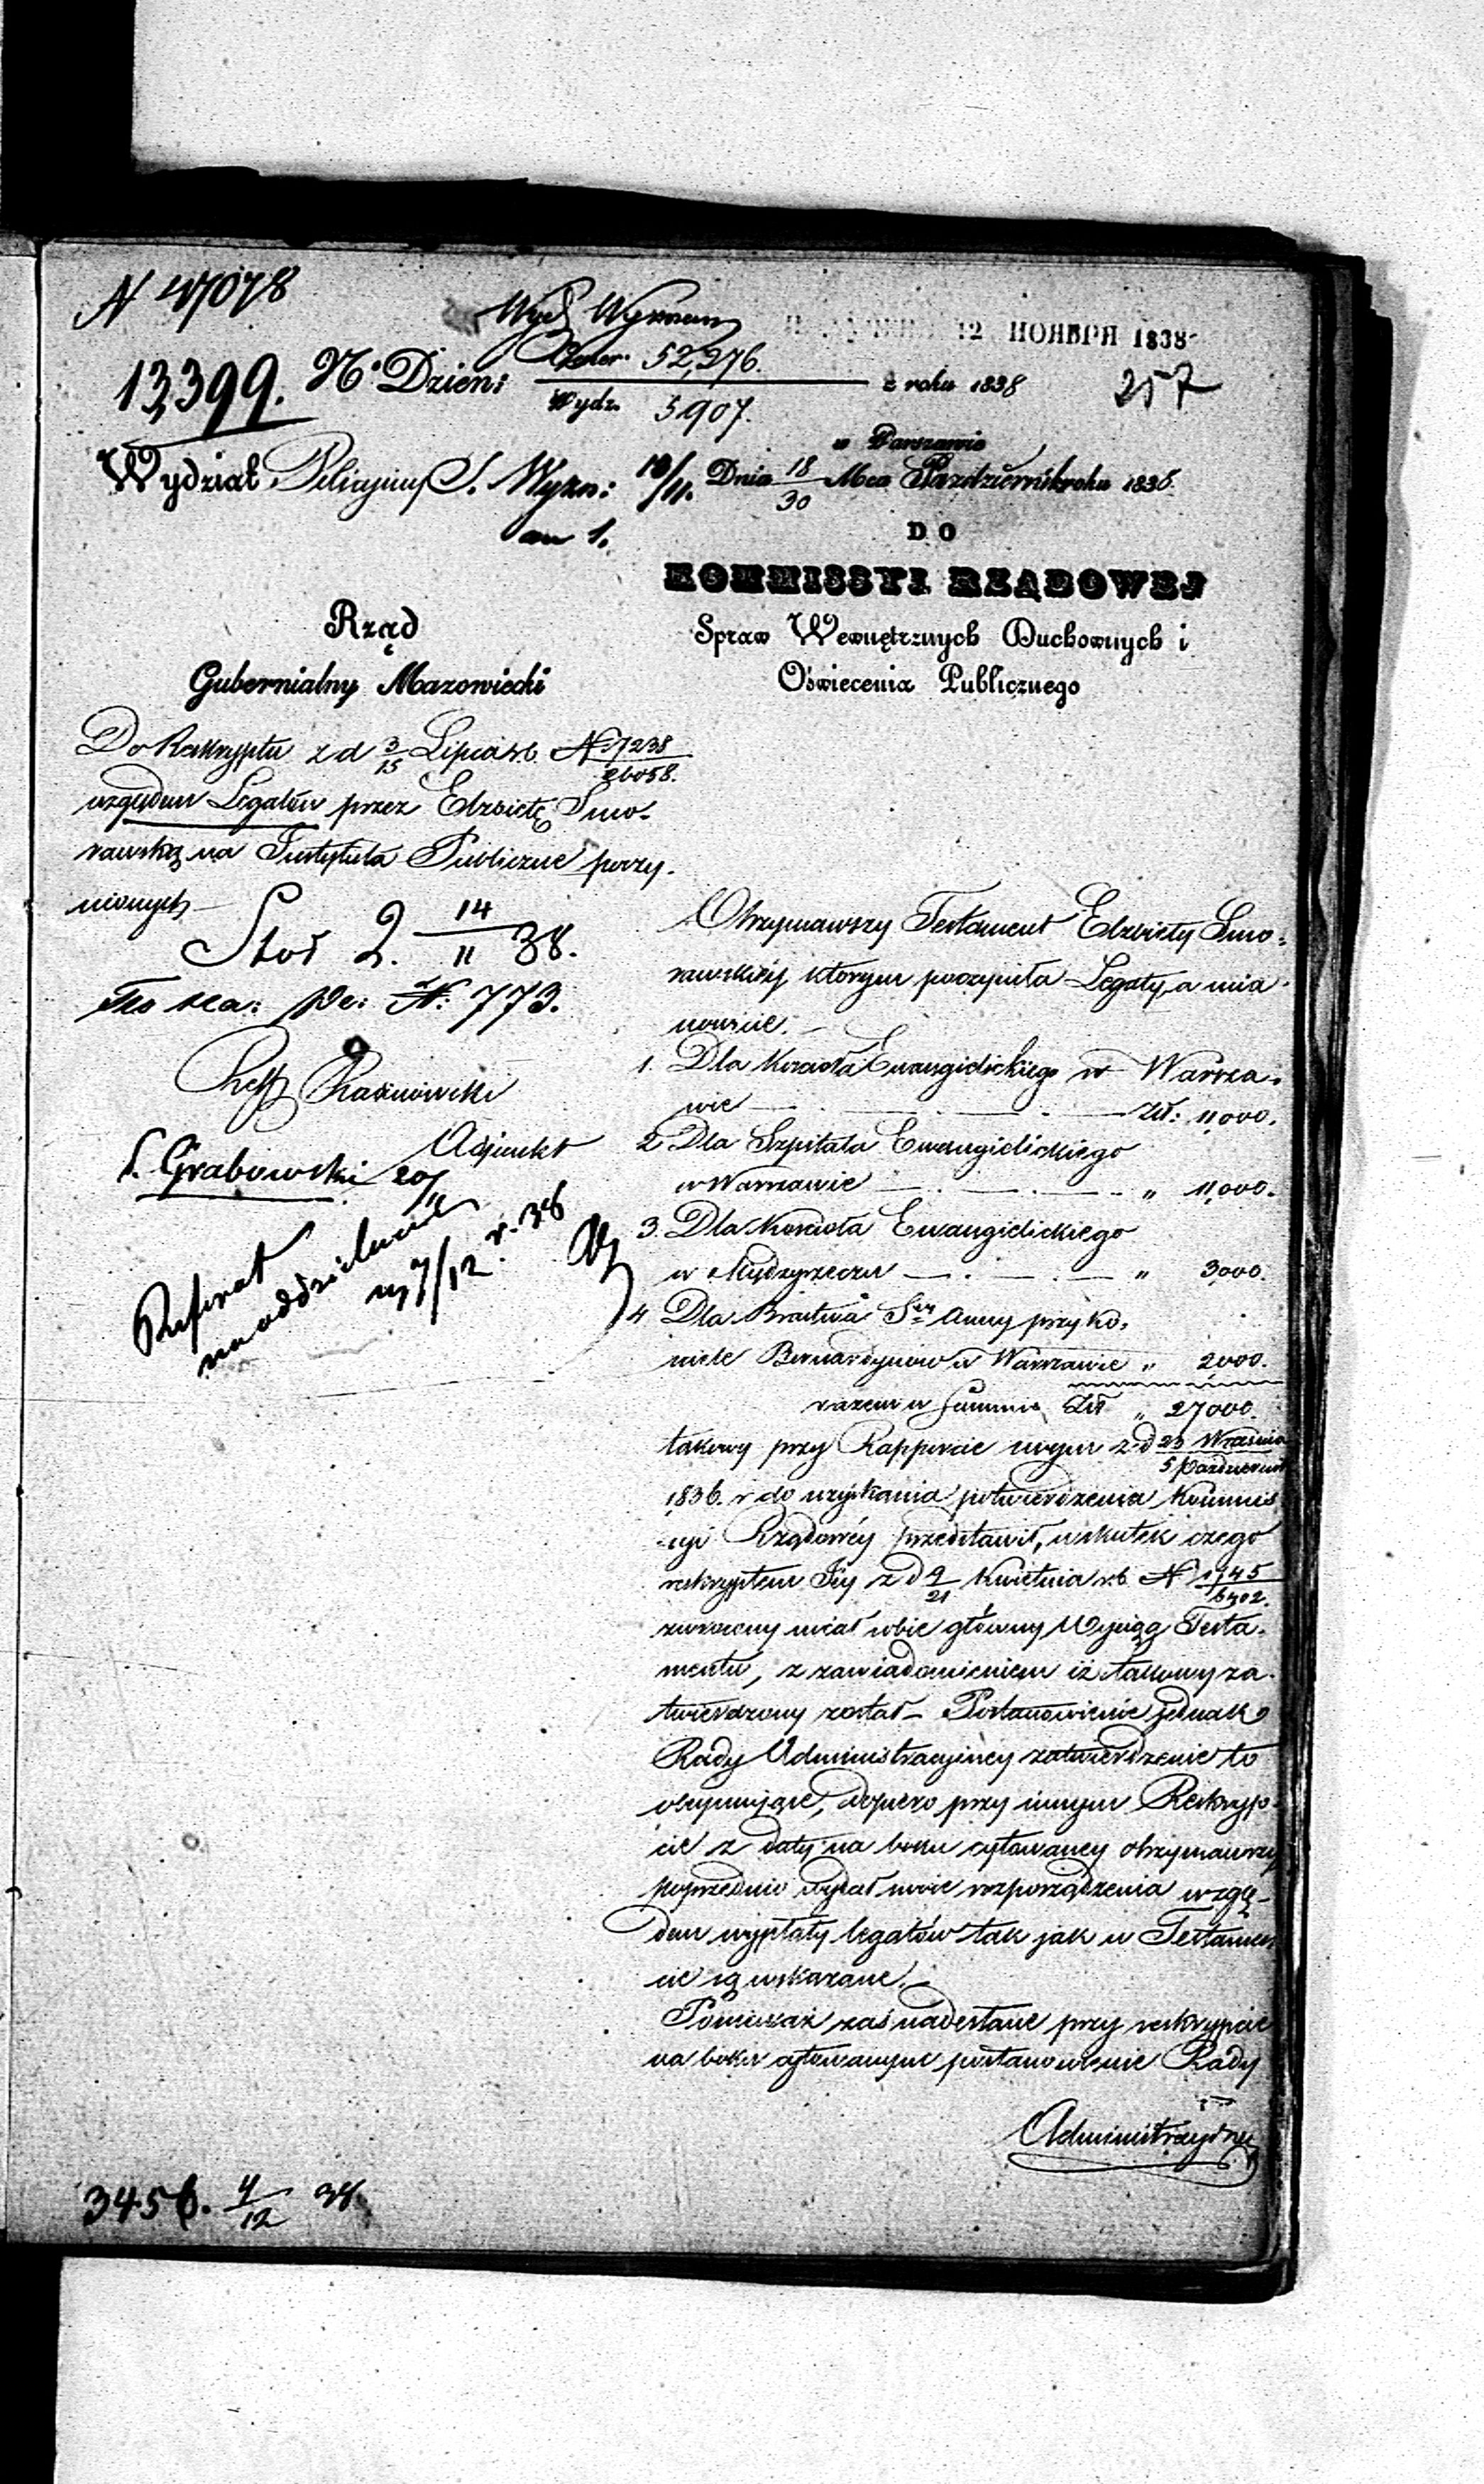 N 47078
Wydz Wyznan
12 НОЯБРЯ 1838
13,399. No Dzien: Gener. 52,276. z roku 1838
Wydz. 5907.
257
w Warszawie
Wydział Policyiny S. Wyzn: Dnia 18/30 Mca Października roku 1838
DO
KOMMISSYI RZĄDOWEJ
Spraw Wewnętrznych Duchownych i
Oświecenia Publicznego
Rząd
Gubernialny Mazowiecki
Do Reskryptu z d 3/15 Lipca r.b. N 7238/26058.
względem Legatów przez Elzbietę Smo-
rawską na Instytuta Publiczne poczy-
nionych
Stół 2. 14/11 38.
N: 773.
Adjunkt
S. Grabowski
Referat
na oddzielnie
7/12 r. 38
Otrzymawszy Testament Elzbiety Smo-
rawskiéj którym poczyniła Legaty, a mia-
nowicie.
1. Dla Kościoła Ewangielickiego w Warsza-
wie Zł: 11,000.
2 Dla Szpitala Ewangielickiego
w Warszawie " 11,000.
3. Dla Kościoła Ewangielickiego
w Międzyrzeczu " 3,000.
4 Dla Bractwa Stey Anny przy ko-
ściele Bernardynów w Warszawie " 2000.
razem w Summie Zł " 27000.
takowy przy Rapporcie moym z d 23 Września/5 Października
1836. r do uzyskania potwierdzenia Kommis
syi Rządowéy przedstawił, w skutek czego
reskryptem Jéy z d 9/21 Kwietnia r.b. N 1745/6302.
zwrócony miał sobie główny Wyciąg Testa-
mentu, z zawiadomieniem iż takowy za-
twierdzony został – Postanowienie jednak
Rady Administracyjney zatwierdzenie to
obeymujące, dopiero przy innym Reskryp-
cie z daty na boku cytowaney otrzymawszy
poprzednio wydał moie rozporządzenia wzglę-
dem wypłaty legatów tak jak w Testamen
cie są wskazane. –
Ponieważ zaś nadesłane przy reskrypcie
na boku cytowanym postanowienie Rady
Administracyjney
3456. 4/12 38